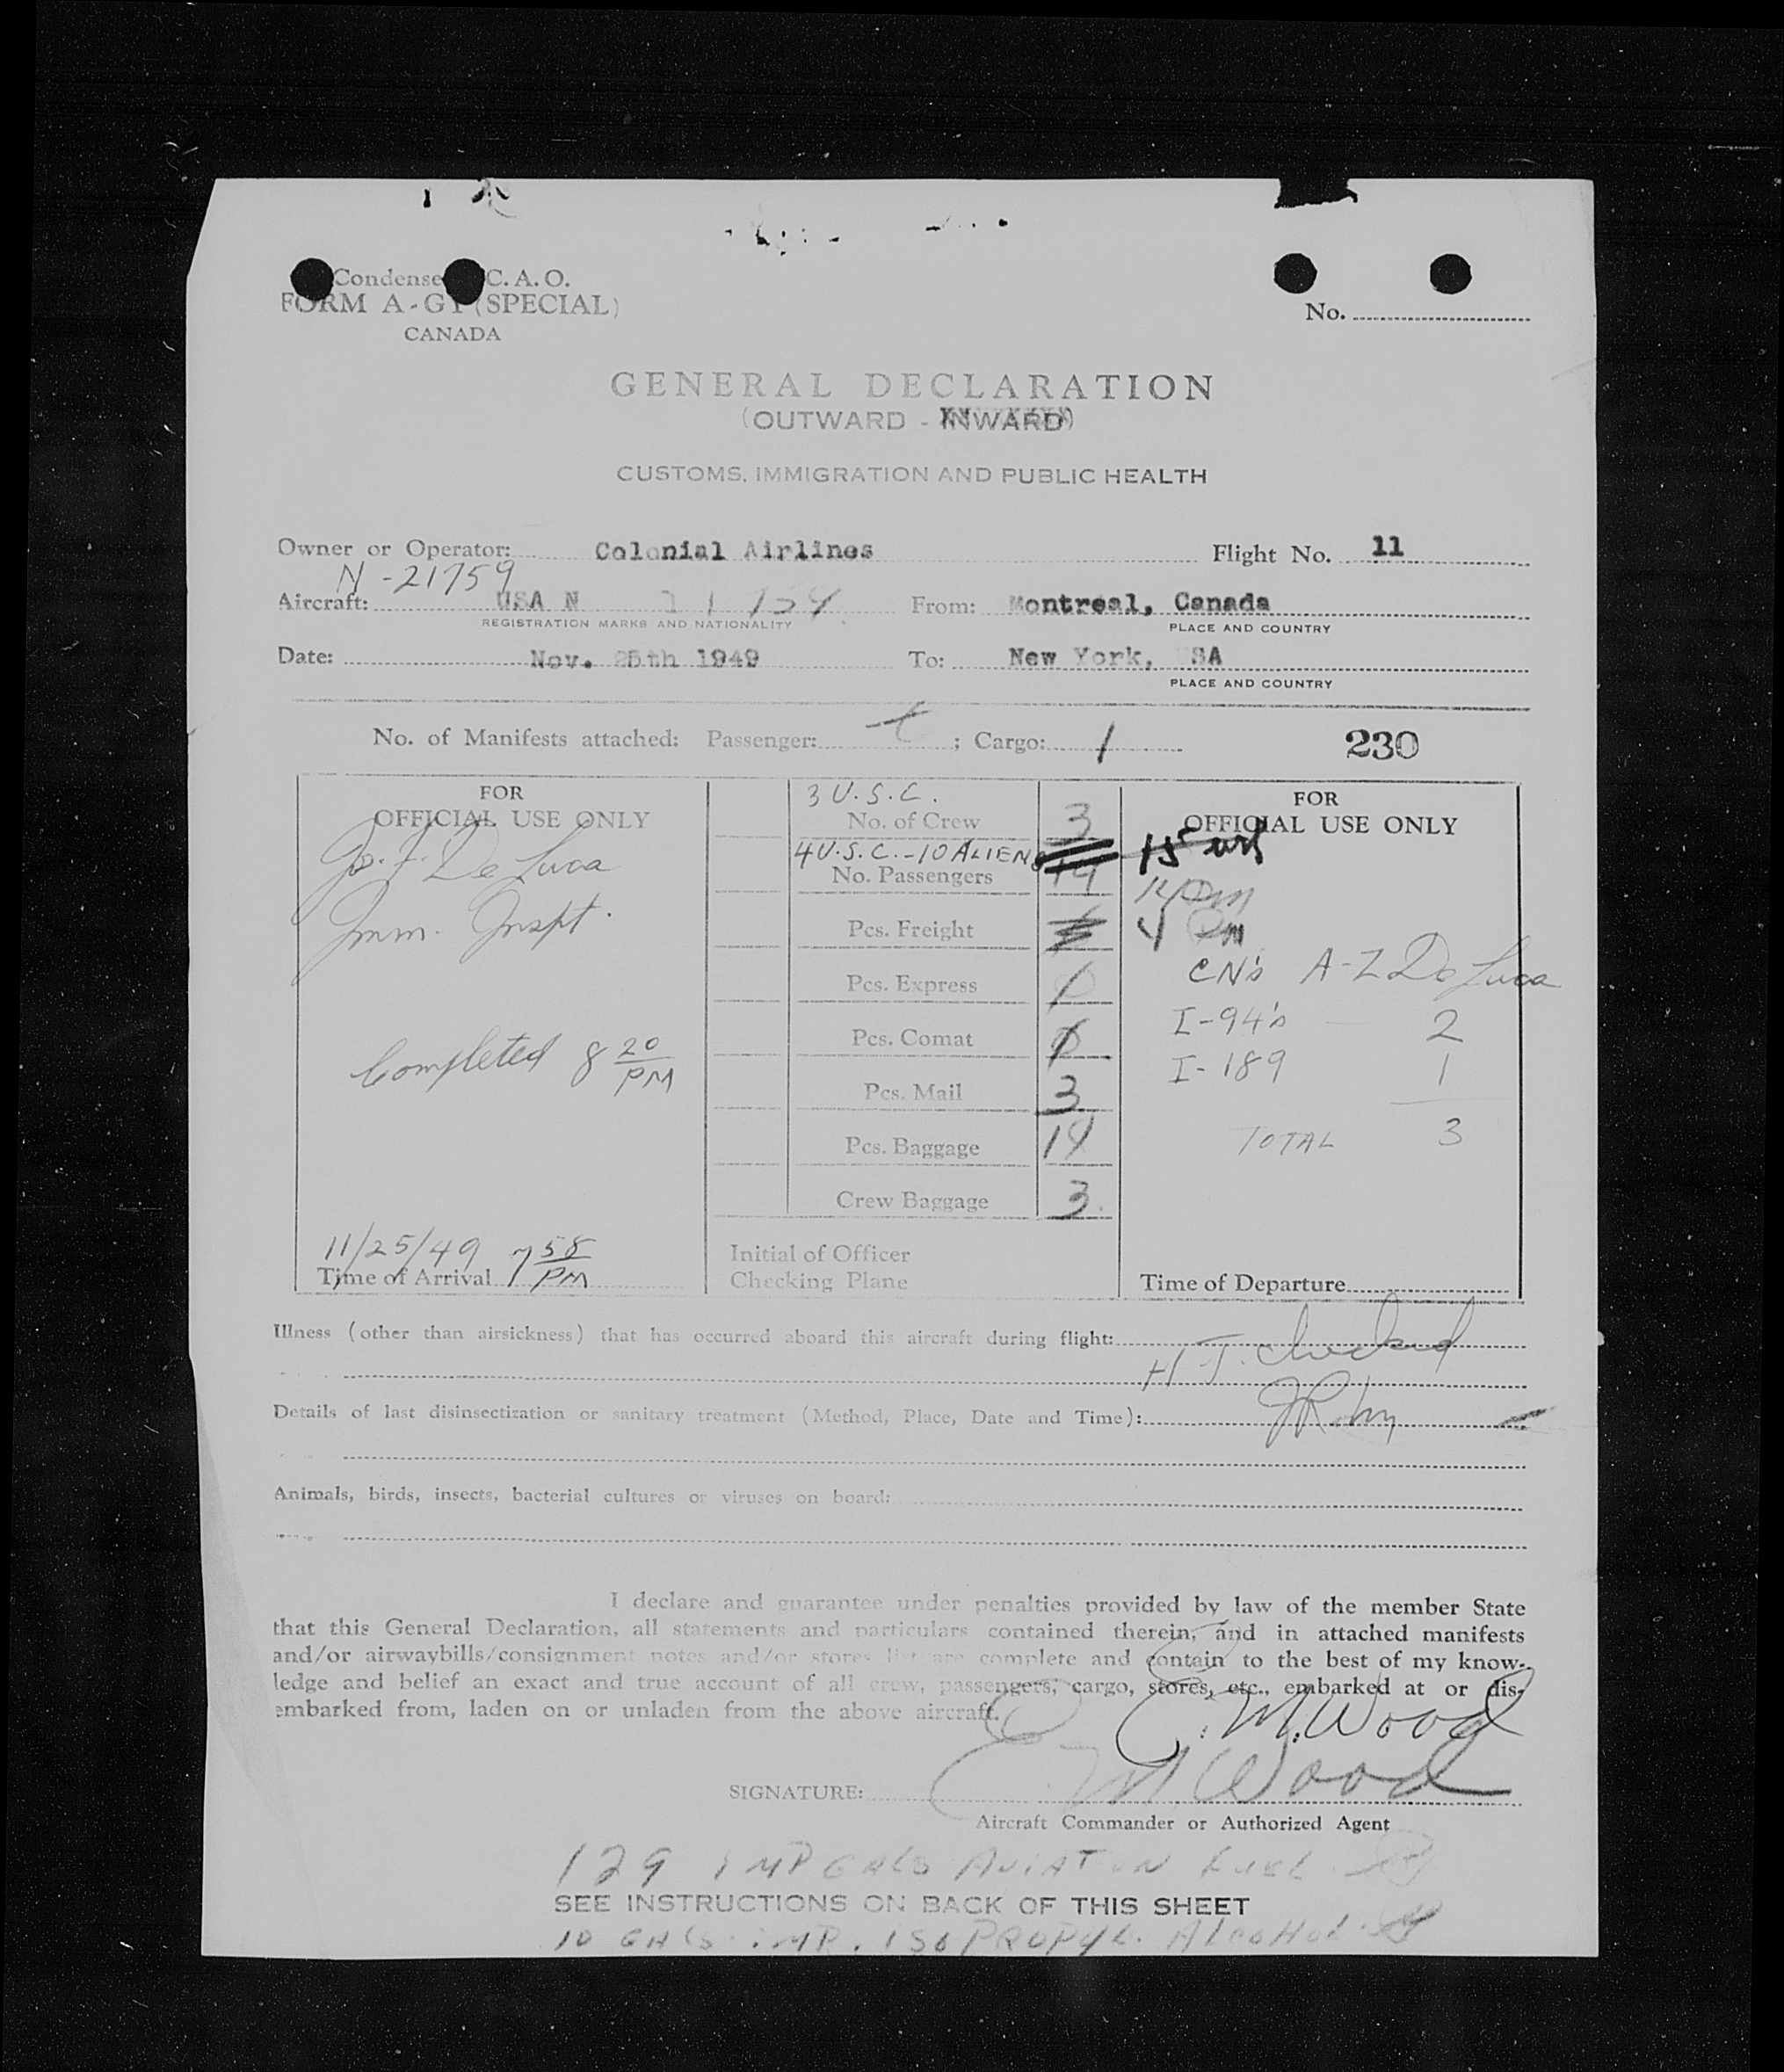 Condense C. A. O.
FORM A-G1 (SPECIAL)
CANADA
No.
GENERAL DECLARATION
(OUTWARD - INWARD)
CUSTOMS, IMMIGRATION AND PUBLIC HEALTH
Owner or Operator: Colonial Airlines Flight No. 11
N-21759
Aircraft: USA N From: Montreal, Canada
REGISTRATION MARKS AND NATIONALITY PLACE AND COUNTRY
Date: Nov. 25th 1949 To: New York, USA
PLACE AND COUNTRY
No. of Manifests attached: Passenger: ; Cargo: 1 230
FOR
OFFICIAL USE ONLY
De Luca
Imm. Inspt.
Completed 8 20 PM
11/25/49 7 58 PM
Time of Arrival
3 U.S.C.
No. of Crew 3
4 U.S.C. - 10 ALIENS
No. Passengers 14
Pcs. Freight
Pcs. Express
Pcs. Comat
Pcs. Mail 3
Pcs. Baggage 14
Crew Baggage 3
Initial of Officer
Checking Plane
FOR
OFFICIAL USE ONLY
15
CN's A-Z De Luca
I-94's - 2
I-189 1
TOTAL 3
Time of Departure
Illness (other than airsickness) that has occurred aboard this aircraft during flight:
Details of last disinsectization or sanitary treatment (Method, Place, Date and Time):
Animals, birds, insects, bacterial cultures or viruses on board:
I declare and guarantee under penalties provided by law of the member State
that this General Declaration, all statements and particulars contained therein, and in attached manifests
and/or airwaybills/consignment notes and/or stores list are complete and contain to the best of my know-
ledge and belief an exact and true account of all crew, passengers, cargo, stores, etc., embarked at or dis-
embarked from, laden on or unladen from the above aircraft.
E. M. Wood
SIGNATURE: E M Wood
Aircraft Commander or Authorized Agent
129 IMP GALS AVIATION FUEL
SEE INSTRUCTIONS ON BACK OF THIS SHEET
10 GALS. IMP. ISOPROPYL. ALCOHOL